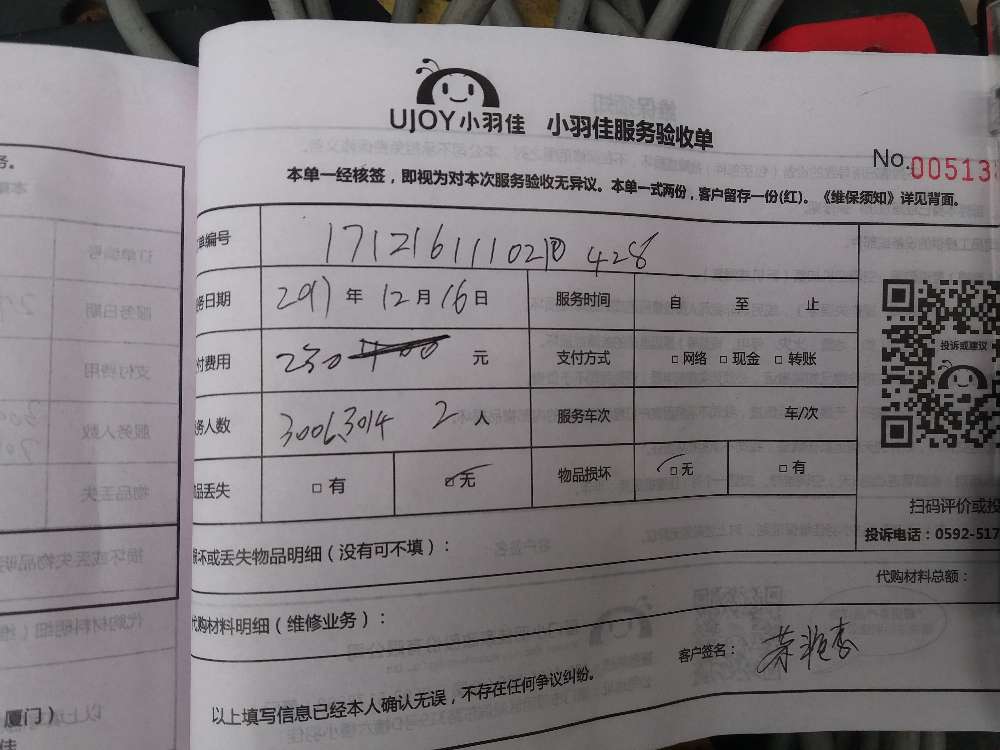 UJOY小羽佳 小羽佳服务验收单
No.00513
本单一经核签，即视为对本次服务验收无异议。本单一式两份，客户留存一份(红)。《维保须知》详见背面。
单编号 171216111021 428
务日期 2017 年 12 月 16 日 服务时间 自 至 止
付费用 230 元 支付方式 □ 网络 □ 现金 □ 转账
务人数 3006.3014 2 人 服务车次 车/次
品丢失 □ 有 □ 无 物品损坏 □ 无 □ 有
投诉或建议
扫码评价或投
投诉电话：0592-517
损坏或丢失物品明细（没有可不填）：
代购材料总额：
代购材料明细（维修业务）：
客户签名：
以上填写信息已经本人确认无误，不存在任何争议纠纷。
务。
厦门）
佳